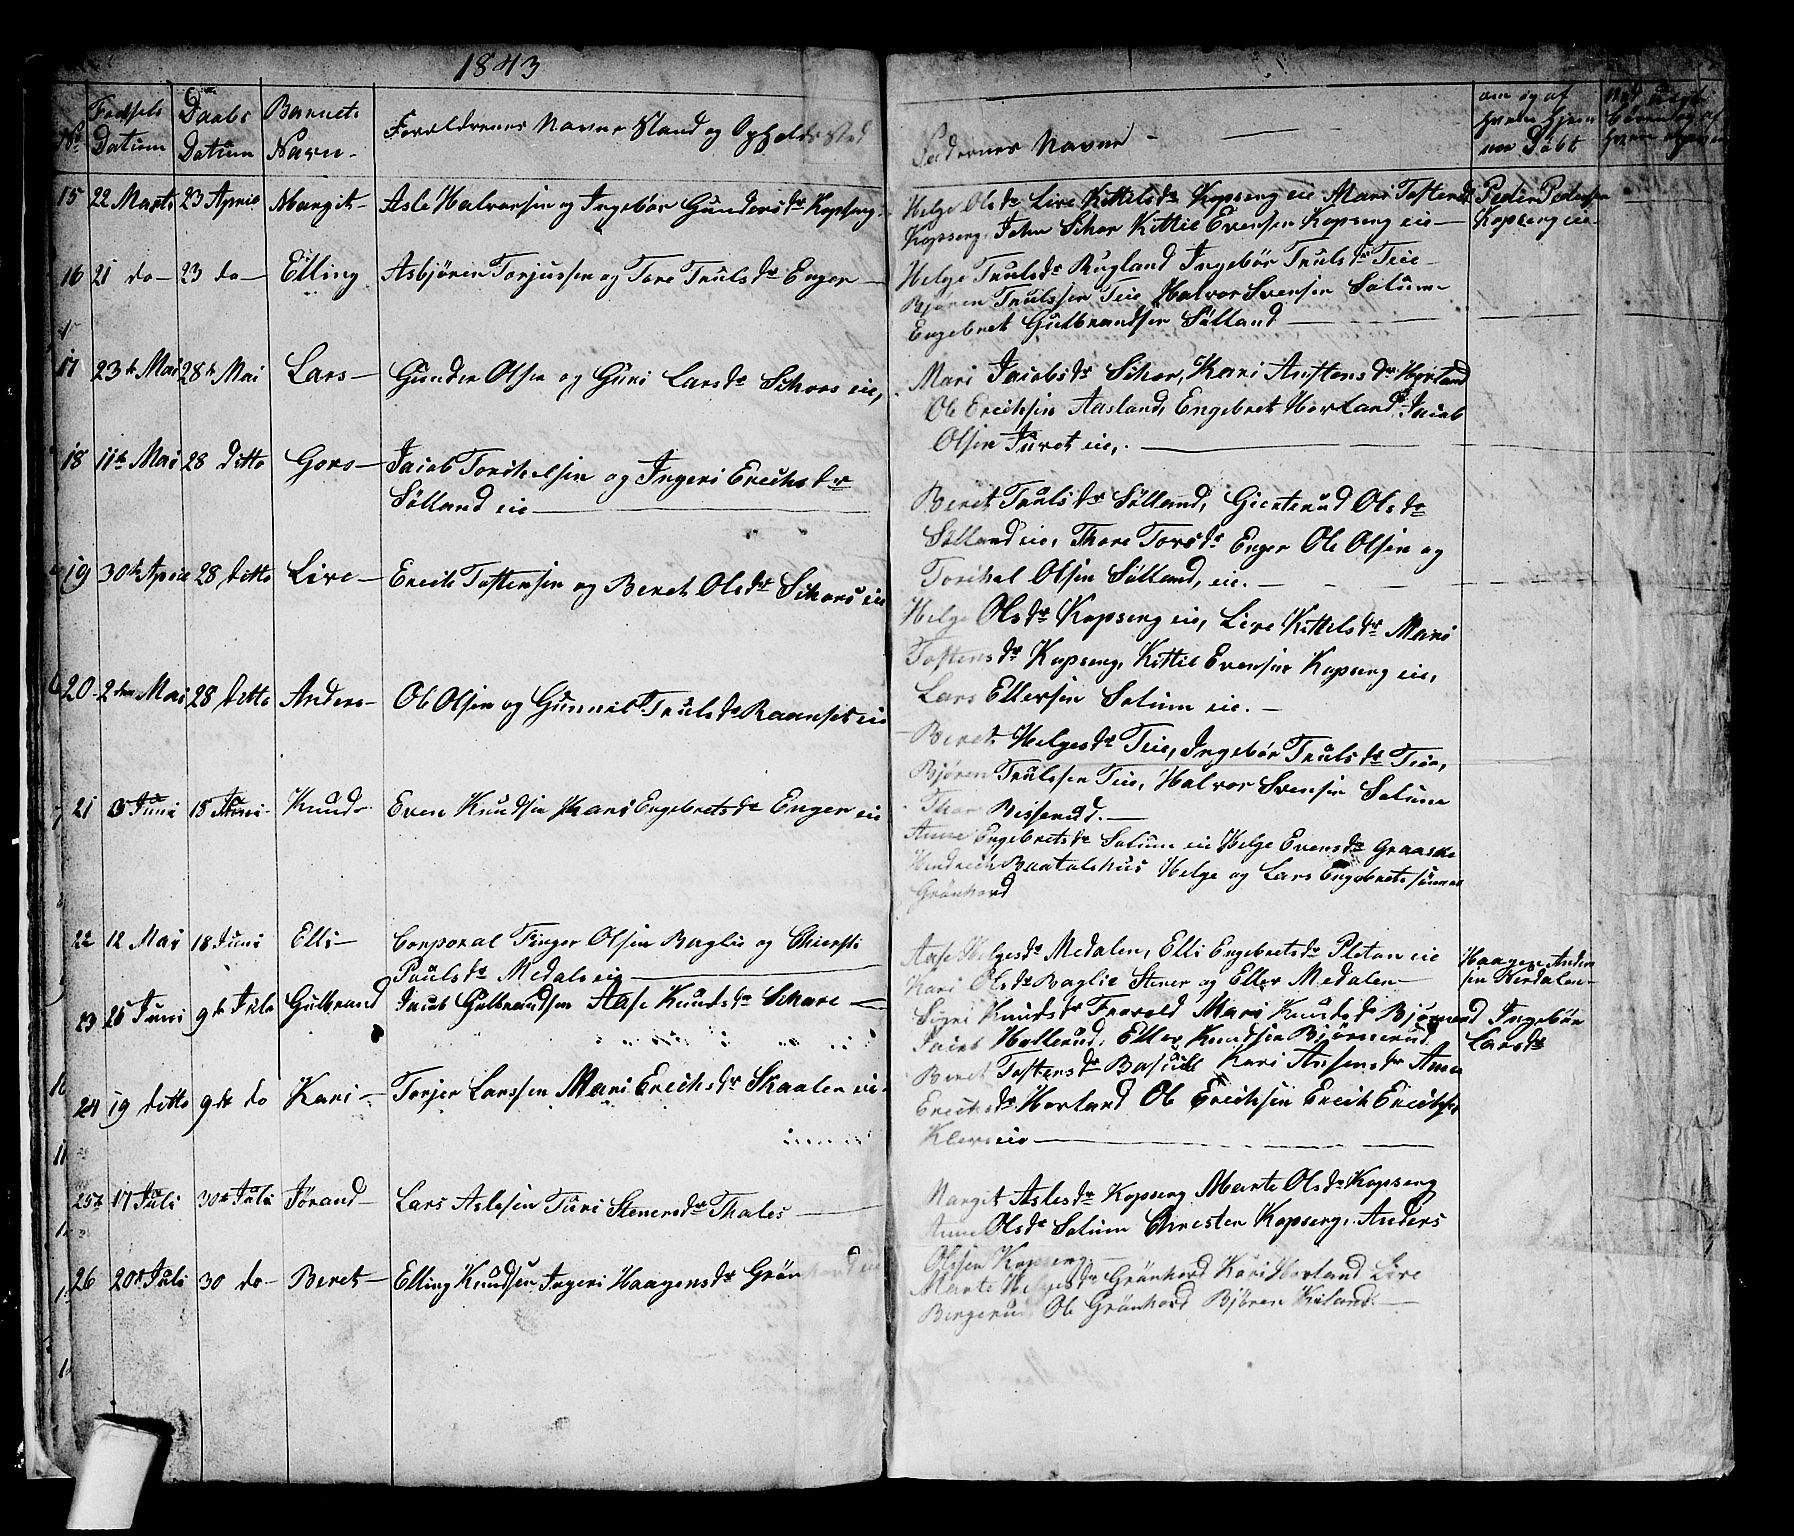 1843
No Fødsels Datum Daabs Datum Barnets Navn Forældrenes Navne Stand og Opholds Sted Faddernes Navne om og af hvem hjemme Døbt
15 22 Marts 23 April Margit Asle Halvorsen og Ingebør Gundersdr Kopseng
Helge Olsdr Live Kittelsdr Kopseng eie Mari Tostensdr
Peder Pedersen
Kopseng John Skar Kittil Evensen Kopseng eie
Kopseng eie
16 21 do 23 do Elling Asbjøren Torjussen og Tore Trulsdr Enger
Helge Trulsdr Rugland Ingebør Trulsdr Teie
Bjøren Trulssen Teie Halvor Svensen Solum
Engebret Gulbrandsen Sølland
17 23de Mai 28de Mai Lars Gunder Olsen og Guri Larsdr Skars eie,
Mari Jacobsdr Skar, Kari Anstensdr Horland
Ole Ericksen Aasland, Engebret Horland, Jacob
Olsen Juvet eie,
18 11te Mai 28 ditto Gors Jacob Torchelsen og Ingeri Erichsdr
Sølland eie
Beret Trulsdr Sølland, Giertrud Olsdr
Sølland eie, Thore Torsdr Enger Ole Olsen og
Torchel Olsen Sølland, eie.
19 30te April 28 ditto Live Erich Tostensen og Beret Olsdr Skars eie
Helge Olsdr Kopseng eie, Live Kittelsdr Mari
Tostensdr Kopseng, Kittil Evensen Kopseng eie,
Lars Ellersen Solum eie.
20 2den Mai 28 ditto Anders Ole Olsen og Gunnil Trulsdr Raanset eie
Beret Helgesdr Teie, Ingebør Trulsdr Teie,
Bjøren Trulssen Teie, Halvor Svensen Solum
Thor Bisserud.
21 5 Juni 18 Juni Knud Even Knudsen Mari Engebretsdr Enger eie
Anne Engebretsdr Solum eie Helge Evensdr Graaske
Hendrich Baatolshus Helge og Lars Engebretssønner
Grønhord
22 12 Mai 18 Juni Elli Corporal Finger Olsen Baglie og Chiersti
Paulsdr Medals eie
Aase Helgesdr Medalen, Elli Engebretsdr Pletan eie
Haagen Andersen
Kari Olsdr Baglie Stener og Eller Medalen
23 25 Juni 9de Jule Gulbrand Jacob Gulbrandsen Aase Knudsdr Skare
Sigri Knudsdr Frovold Mari Knudsdr Bjørnerud
Ingebør
Jacob Hollerud, Eller Knudsen Bjørnerud
Larsdr
24 19 ditto 9de do Kari Torjer Larssen Mari Erichsdr Skaalen eie
Beret Tostensdr Kari Anstensdr Anne
Erichsdr Horland Ole Erichsen Erich Erichsen
25 17 Juli 30te Juli Jørand Lars Aslesen Turi Stenersdr Thales
Margit Aslesdr Kopseng Marte Olsdr Kopseng
Anne Olsdr Solum Christen Kopseng, Anders
Olsen Kopseng
26 20de Juli 30 do Beret Elling Knudsen Ingeri Haagensdr Grønhord eie
Marte Helgesdr Grønhord Kari Horland Live
Bergerud Ole Grønhord Bjøren Kiland.